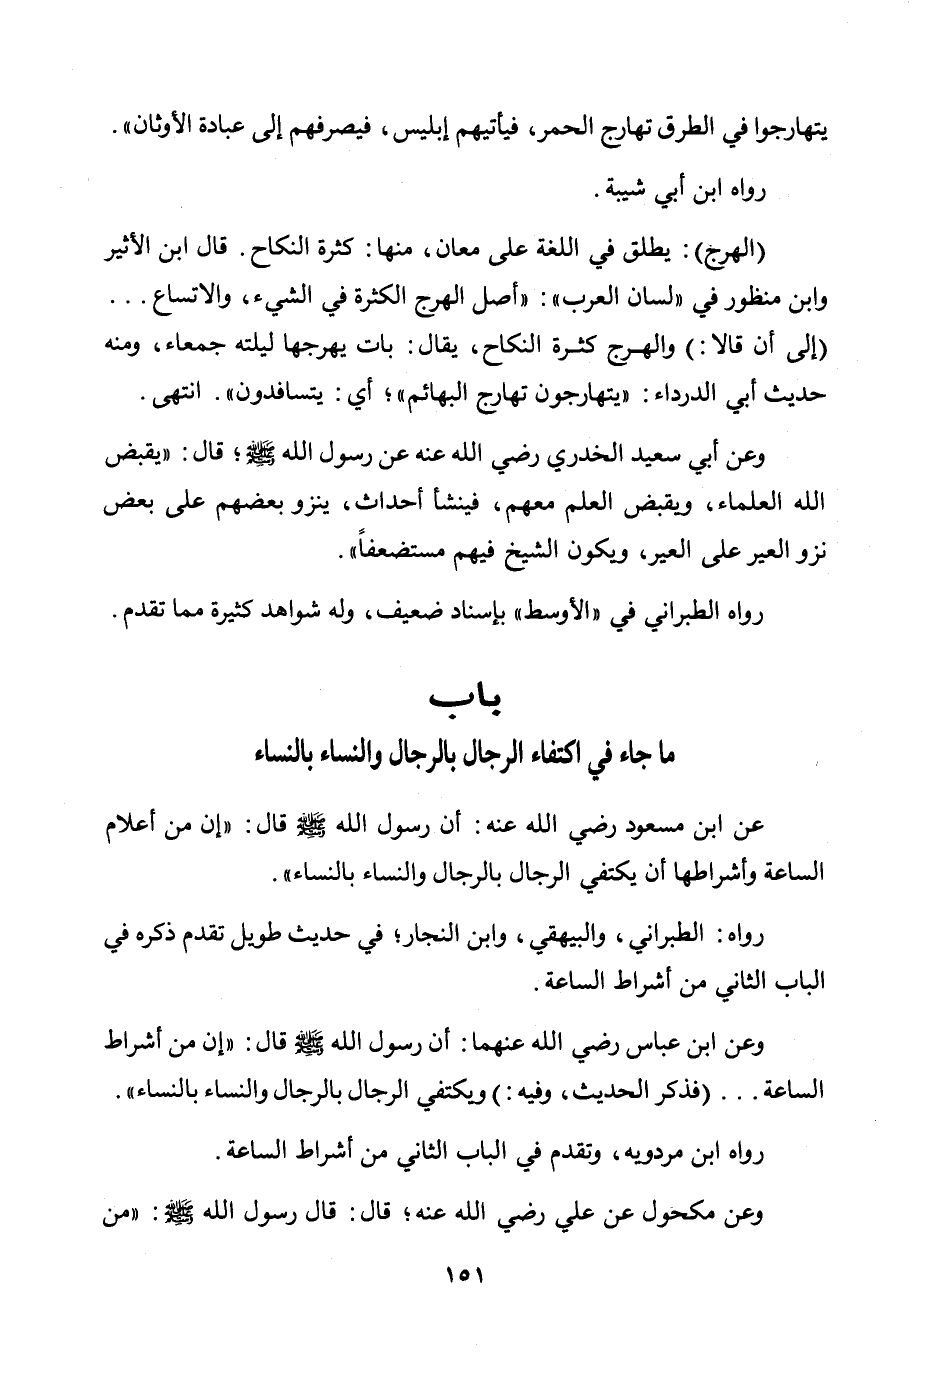 يتهارجوا في الطرق تهارج الحمر، فيأتيهم إبليس، فيصرفهم إلى عبادة الأوثان».
رواه ابن أبي شيبة.
(الهرج): يطلق في اللغة على معان، منها: كثرة النكاح. قال ابن الأثير
وابن منظور في «لسان العرب»: «أصل الهرج الكثرة في الشيء، والاتساع...
(إلى أن قالا:) والهرج كثرة النكاح، يقال: بات يهرجها ليلته جمعاء، ومنه
حديث أبي الدرداء: «يتهارجون تهارج البهائم»؛ أي: يتسافدون». انتهى.
وعن أبي سعيد الخدري رضي الله عنه عن رسول الله ﷺ؛ قال: «يقبض
الله العلماء، ويقبض العلم معهم، فينشأ أحداث، ينزو بعضهم على بعض
نزو العير على العير، ويكون الشيخ فيهم مستضعفاً».
رواه الطبراني في «الأوسط» بإسناد ضعيف، وله شواهد كثيرة مما تقدم.
باب
ما جاء في اكتفاء الرجال بالرجال والنساء بالنساء
عن ابن مسعود رضي الله عنه: أن رسول الله ﷺ قال: «إن من أعلام
الساعة وأشراطها أن يكتفي الرجال بالرجال والنساء بالنساء».
رواه: الطبراني، والبيهقي، وابن النجار؛ في حديث طويل تقدم ذكره في
الباب الثاني من أشراط الساعة.
وعن ابن عباس رضي الله عنهما: أن رسول الله ﷺ قال: «إن من أشراط
الساعة... (فذكر الحديث، وفيه:) ويكتفي الرجال بالرجال والنساء بالنساء».
رواه ابن مردويه، وتقدم في الباب الثاني من أشراط الساعة.
وعن مكحول عن علي رضي الله عنه؛ قال: قال رسول الله ﷺ: «من
١٥١